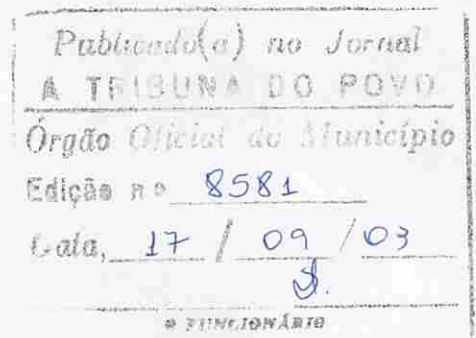 Publicado(a) no Jornal
A TRIBUNA DO POVO
Órgão Oficial do Município
Edição nº 8581
Data, 17 / 09 / 03
FUNCIONÁRIO